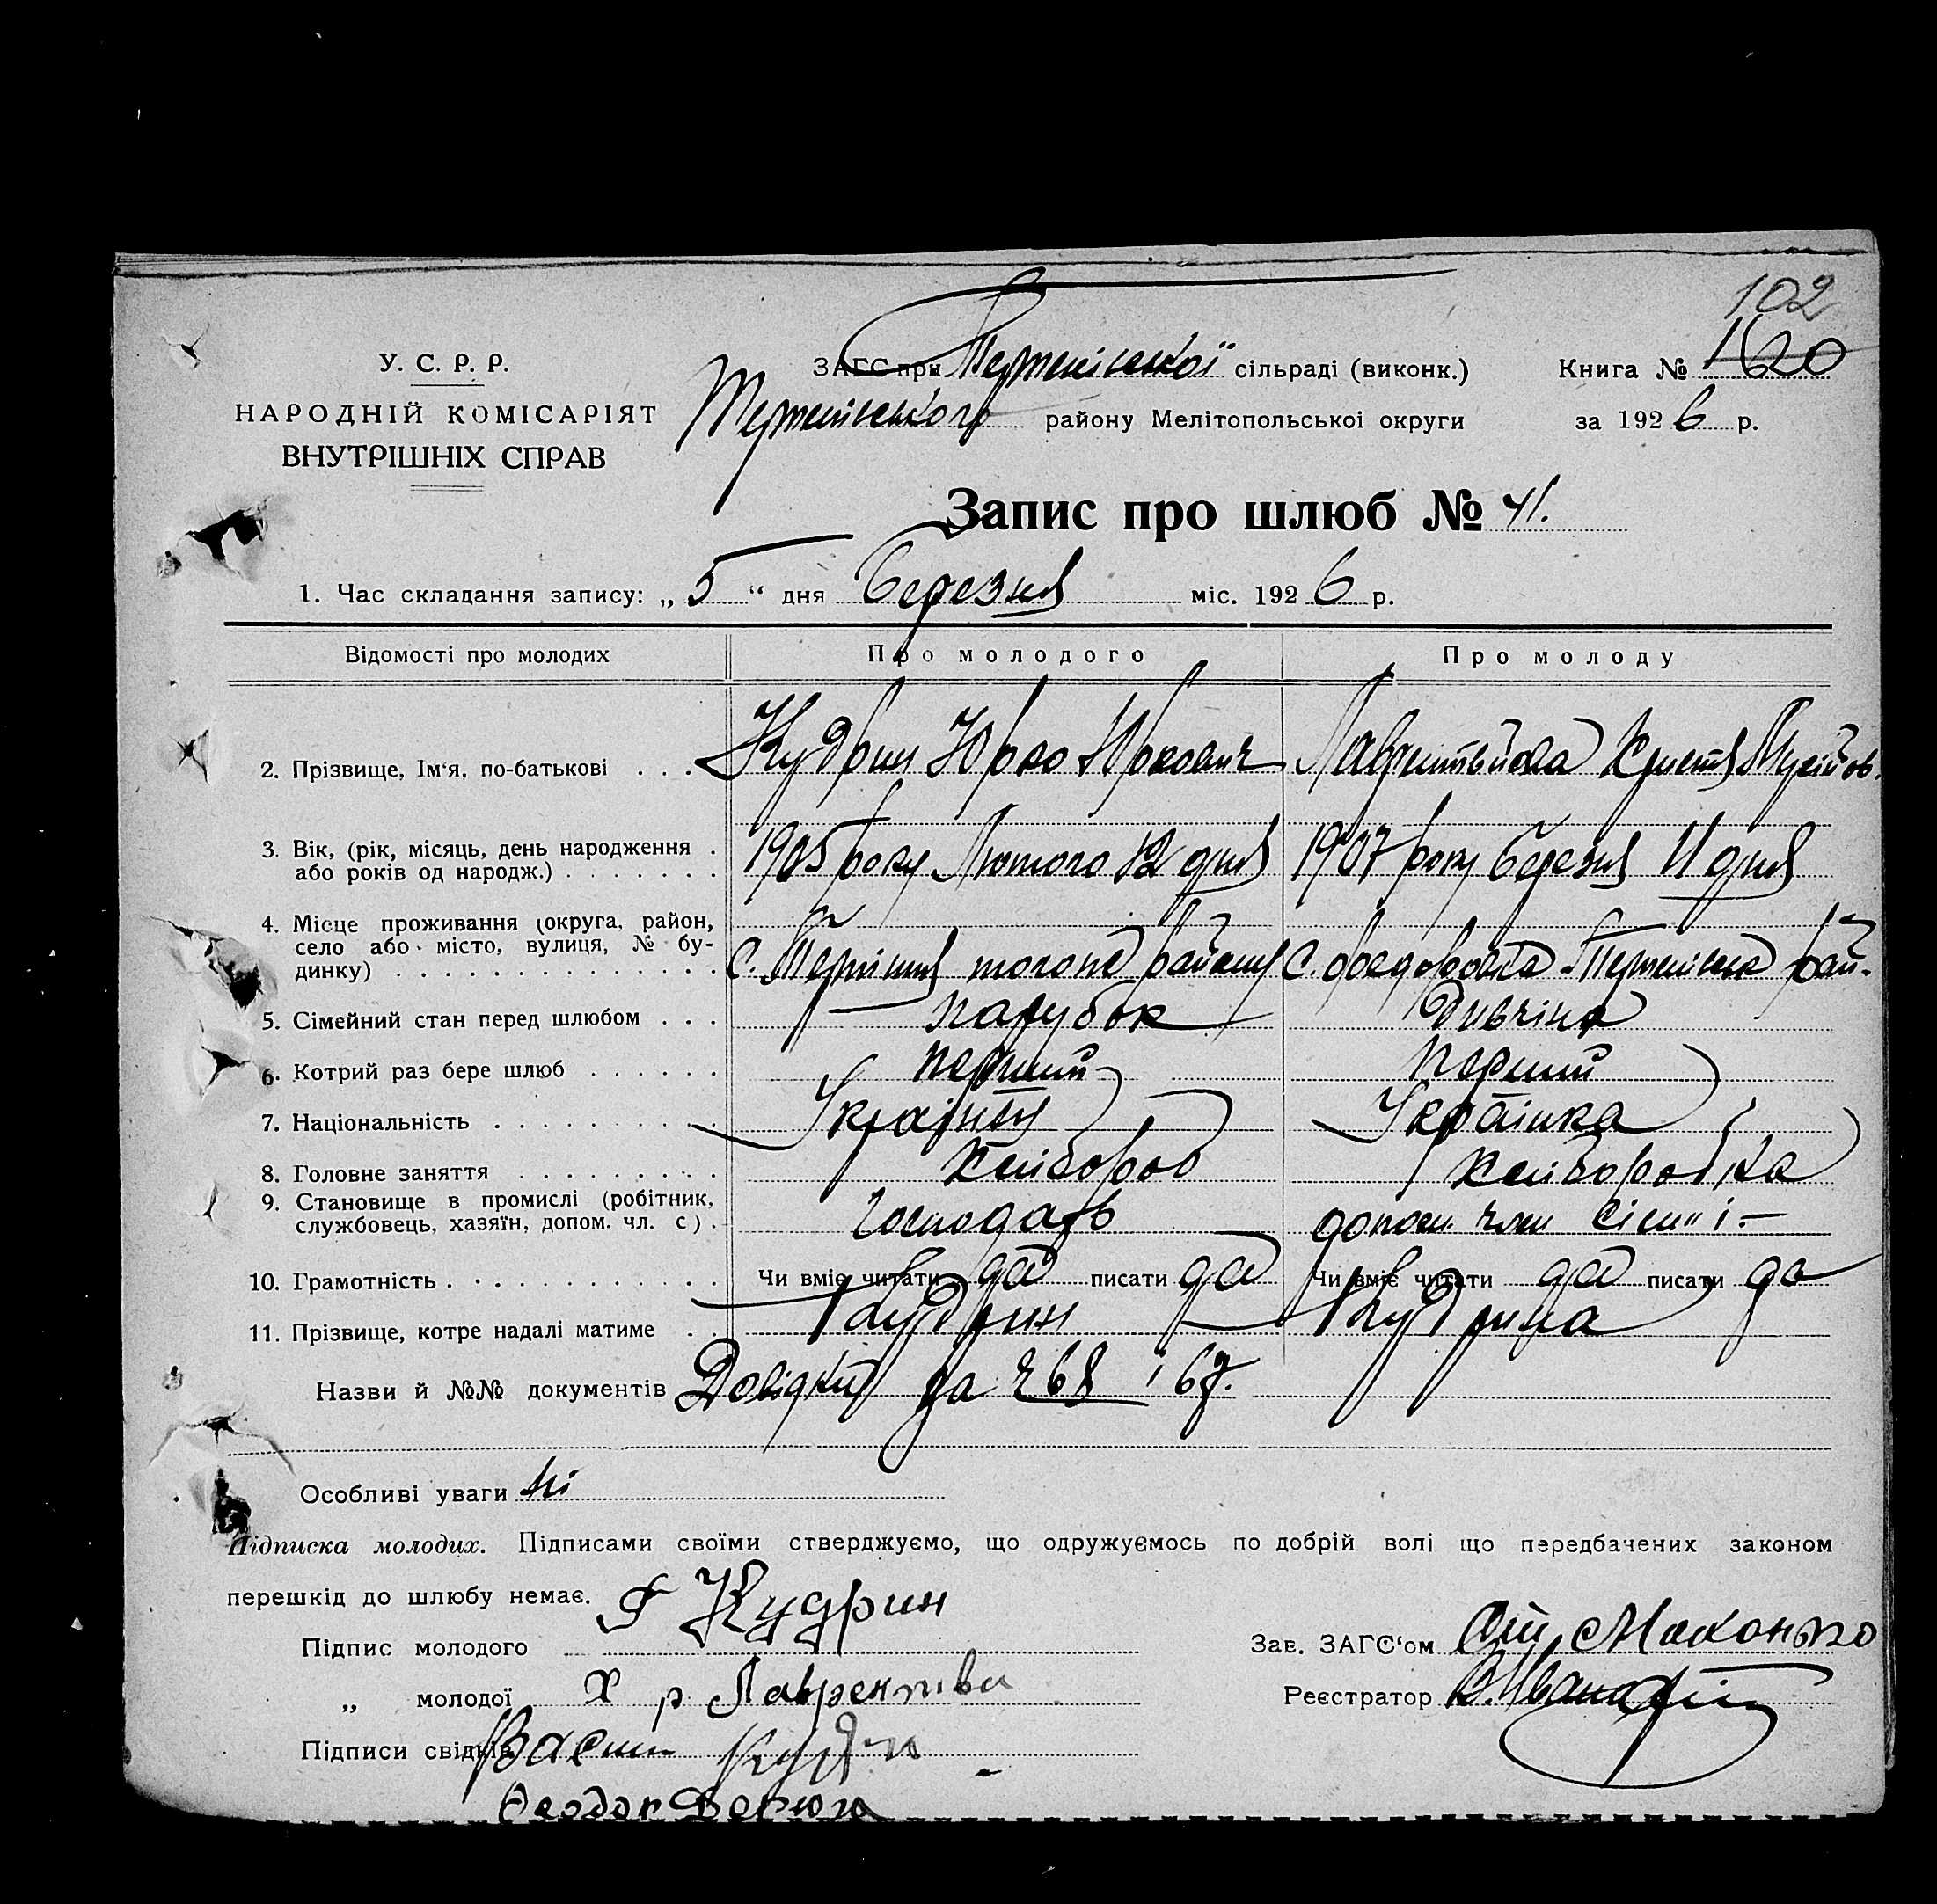 102
У. С. Р. Р.
НАРОДНІЙ КОМІСАРІЯТ
ВНУТРІШНІХ СПРАВ
ЗАГС при Терпенівської сільраді (виконк.)
Терпенівського району Мелітопольської округи
Книга № 1620
за 1926 р.
Запис про шлюб № 41.
1. Час складання запису: „5“ дня Березня міс. 1926 р.
Відомості про молодих Про молодого Про молоду
2. Прізвище, Ім‘я, по-батькові . . . Кудрин Юрко Юркович Христя
3. Вік, (рік, місяць, день народження . або років од народж.) . . . . . . . 1905 року Лютого 12 дня 1907 року березня 11 дня
4. Місце проживання (округа, район, село або місто, вулиця, № бу-
динку) . . . . . . . . . . . . . . с. Терпіння того ж району с. Федоровка Терпенівськ рай.
5. Сімейний стан перед шлюбом . . . парубок дивчіна
6. Котрий раз бере шлюб . . . . . . перший перший
7. Національність . . . . . . . . . . Українець Українка
8. Головне заняття . . . . . . . . . хлібороб хліборобка
9. Становище в промислі (робітник, службовець, хазяїн, допом. чл. с) . Господарь допом. член сісиіі.—
10. Грамотність . . . . . . . . . . . . Чи вміє читати да писати да Чи вміє читати да писати да
11. Прізвище, котре надалі матиме . . Кудрин Кудрина
Назви й №№ документів Довідки за 268 і 67.
Особливі уваги ні
Підписка молодих. Підписами своїми стверджуємо, що одружуємось по добрій волі що передбачених законом
перешкід до шлюбу немає.
Підпис молодого Кудрин
Зав. ЗАГС‘ом
„ молодої Х р Лаврентіва
Реєстратор
Підписи свідків